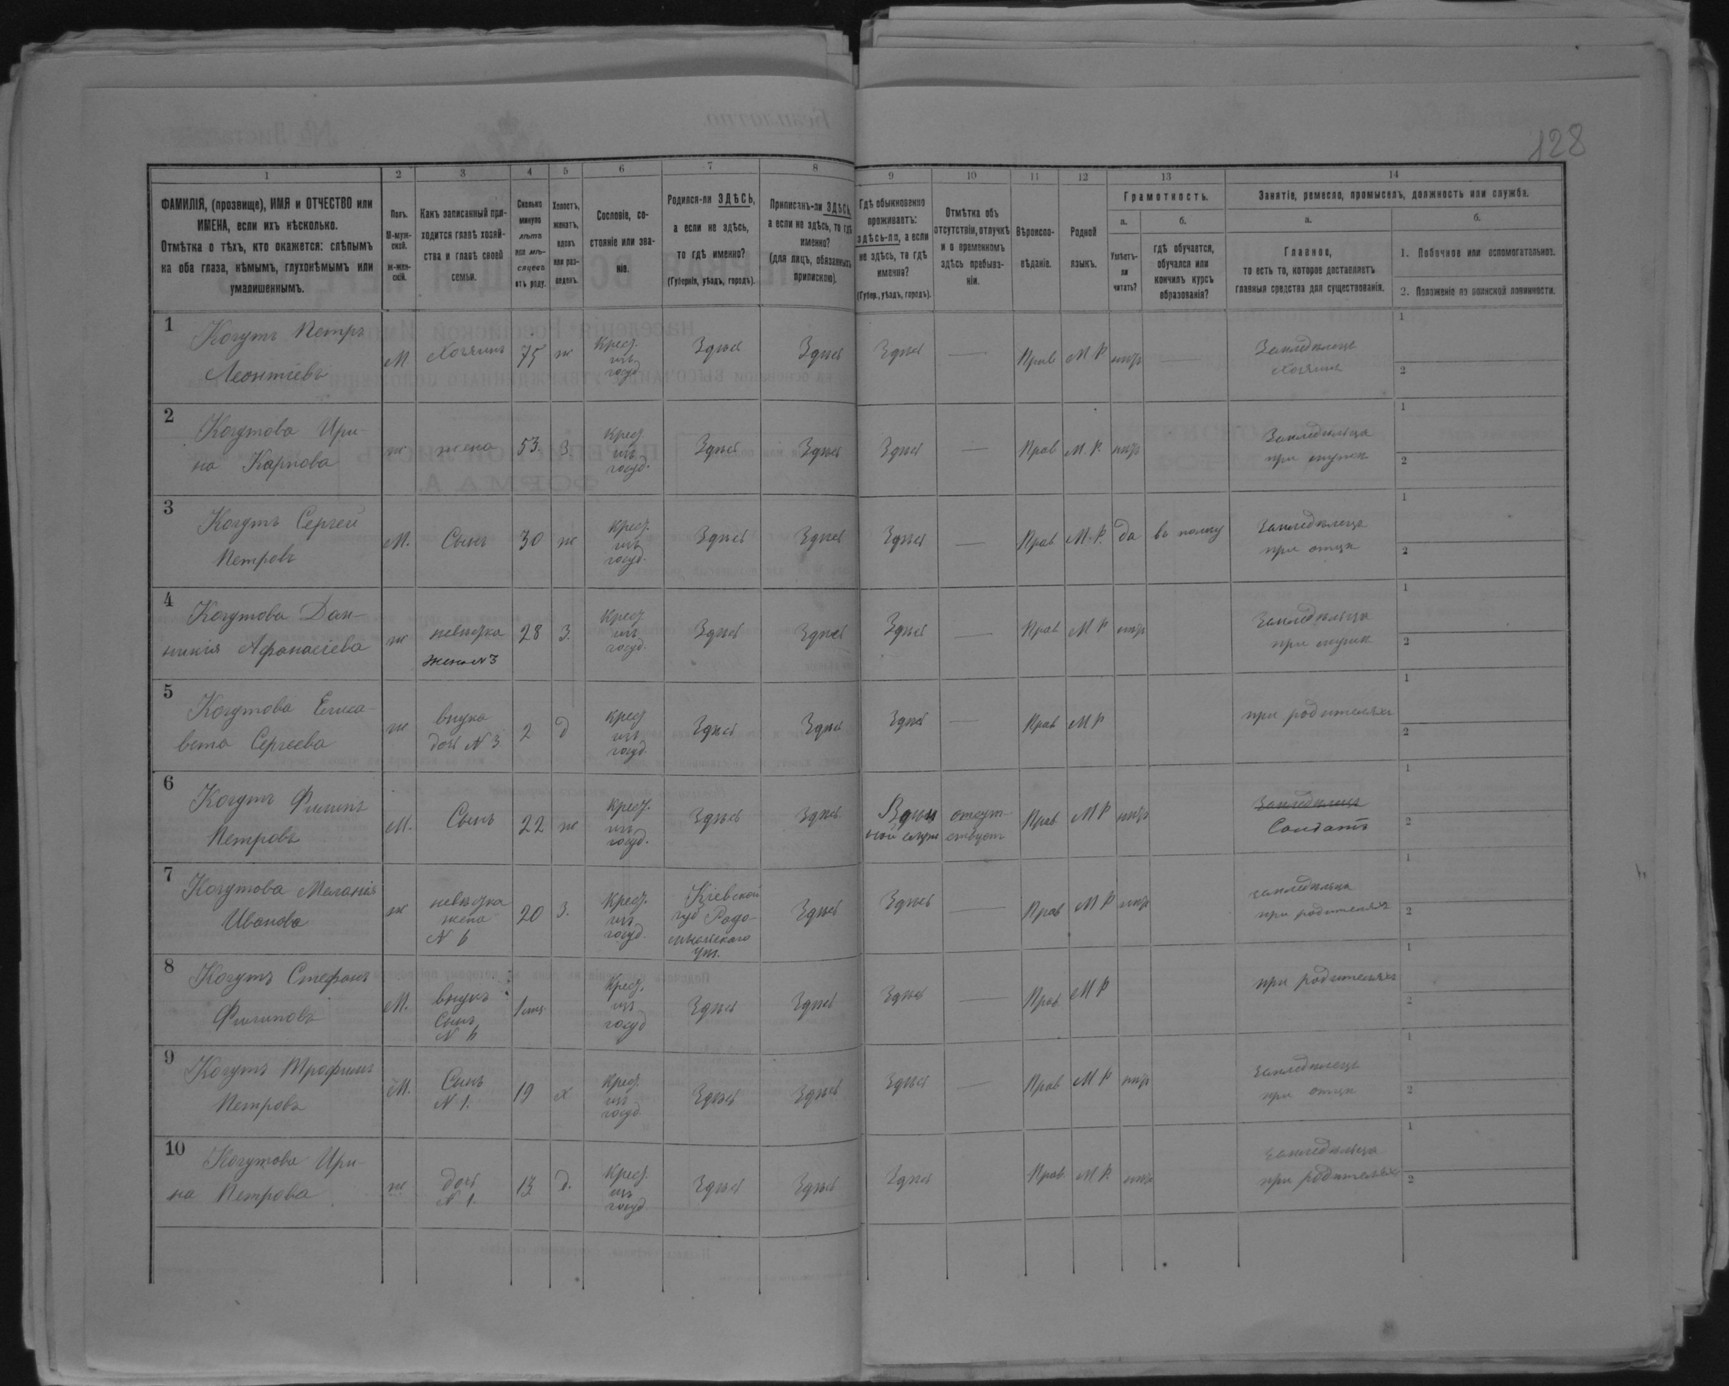 128
1
2
3
4
5
6
7
8
9
10
11
12
13
14
ФАМИЛІЯ, (прозвище), ИМЯ и ОТЧЕСТВО или
ИМЕНА, если ихъ нѣсколько.
Отмѣтка о тѣхъ, кто окажется: слѣпымъ
на оба глаза, нѣмымъ, глухонѣмымъ или
умалишеннымъ.
Полъ.
М-муж-
ской.
ж-жен-
скій.
Какъ записанный при-
ходится главѣ хозяй-
ства и главѣ своей
семьи.
Сколько
минуло
лѣтъ
или мѣ-
сяцевъ
отъ роду.
Холостъ,
женатъ,
вдовъ
или раз-
веденъ.
Сословіе, со-
стояніе или зва-
ніе.
Родился-ли ЗДѢСЬ,
а если не здѣсь,
то гдѣ именно?
(Губернія, уѣздъ, городъ).
Приписанъ-ли ЗДѢСЬ,
а если не здѣсь, то гдѣ
именно?
(для лицъ, обязанныхъ
припискою).
Гдѣ обыкновенно
проживаетъ:
здѣсь-ли, а если
не здѣсь, то гдѣ
именно?
(Губер., уѣздъ, городъ).
Отмѣтка объ
отсутствіи, отлучкѣ
и о временномъ
здѣсь пребыва-
ніи.
Вѣроиспо-
вѣданіе.
Родной
языкъ.
Грамотность.
а.
б.
Умѣетъ-
ли
читать?
гдѣ обучается,
обучался или
кончилъ курсъ
образованія?
Занятіе, ремесло, промыселъ, должность или служба.
а.
б.
Главное,
то есть то, которое доставляетъ
главныя средства для существованія.
1. Побочное или вспомогательное.
2. Положеніе по воинской повинности.
1
Когутъ Петръ
Леонтіевъ
М
Хозяинъ
75
ж
Крест.
изъ
госуд.
Здѣсь
Здѣсь
Здѣсь
—
Прав
М Р
нѣтъ
—
Земледѣлецъ
Хозяинъ
1
2
2
Когутова Ири-
на Карпова
ж
жена
53
З.
Крест.
изъ
госуд.
Здѣсь
Здѣсь
Здѣсь
—
Прав
М. Р.
нѣтъ
Земледѣлица
при мужѣ
1
2
3
Когутъ Сергей
Петровъ
М.
Сынъ
30
ж
Крест.
изъ
госуд.
Здѣсь
Здѣсь
Здѣсь
—
Прав
М. Р.
да
въ полку
Земледѣлецъ
при отцѣ
1
2
4
Когутова
Афанасіева
ж
невѣстка
жена №3
28
З.
Крест.
изъ
госуд.
Здѣсь
Здѣсь
Здѣсь
—
Прав
М Р
нѣтъ
Земледѣлица
при мужѣ
1
2
5
Когутова Елиса-
вета Сергеева
ж
внука
дочь № 3
2
д
Крест
изъ
госуд.
Здѣсь
Здѣсь
Здѣсь
—
Прав
М Р
при родителяхъ
1
2
6
Когутъ Филипъ
Петровъ
М.
Сынъ
22
ж
Крест.
изъ
госуд.
Здѣсь
Здѣсь
отсут-
ствуетъ
Прав
М Р
нѣтъ
Земледѣлецъ
Солдатъ
1
2
7
Когутова Маланія
Иванова
ж
невѣстка
жена
№ 6
20
З.
Крест.
изъ
госуд.
Кіевской
губ Радо-
мысльскаго
уѣз.
Здѣсь
Здѣсь
—
Прав
М Р
нѣтъ
земледѣлица
при родителяхъ
1
2
8
Когутъ Стефанъ
Филиповъ
М.
внукъ
Сынъ
№ 6
1 мѣс.
Крест.
изъ
госуд
Здѣсь
Здѣсь
Здѣсь
—
Прав
М Р
при родителяхъ
1
2
9
Когутъ Трофимъ
Петровъ
М.
Сынъ
№ 1.
19
х
Крест.
изъ
госуд
Здѣсь
Здѣсь
Здѣсь
—
Прав
М Р
нѣтъ
Земледѣлецъ
при отцѣ
1
2
10
Когутова Ири-
на Петрова
ж
дочь
№ 1
13
д.
Крест.
изъ
госуд
Здѣсь
Здѣсь
Здѣсь
Прав.
М. Р.
нѣтъ
земледѣлица
при родителяхъ
1
2